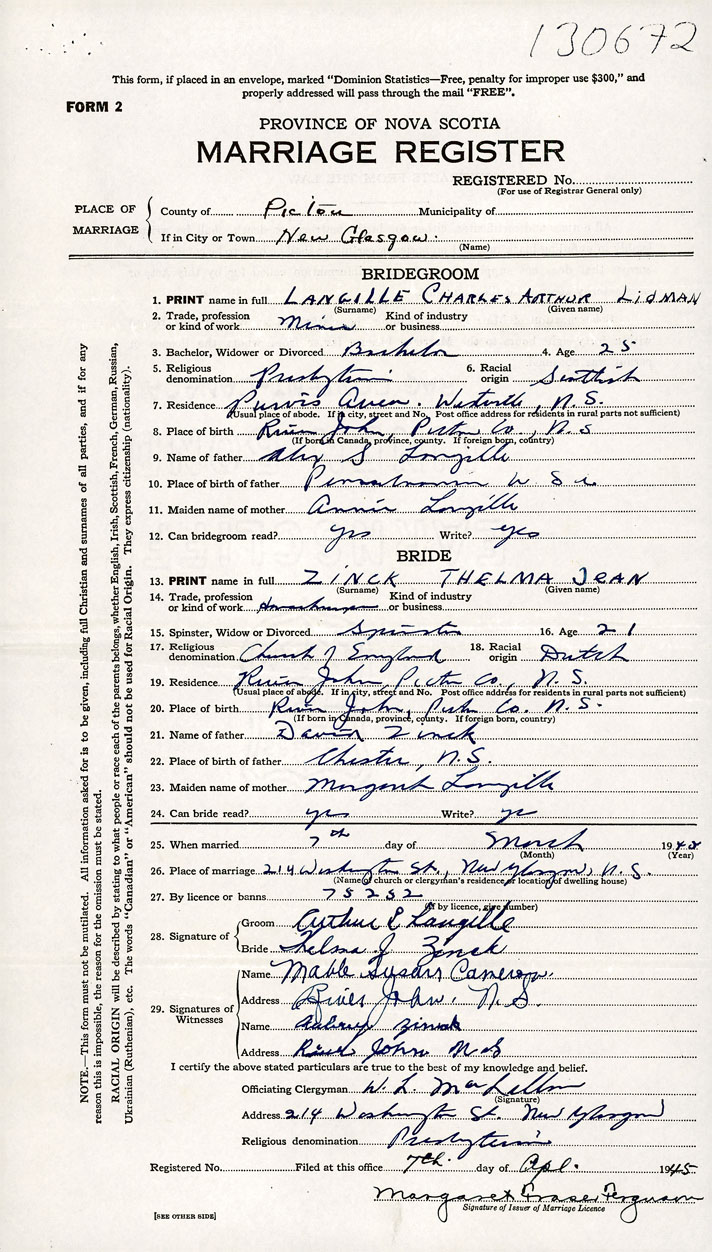 130672
This form, if placed in an envelope, marked "Dominion Statistics—Free, penalty for improper use $300," and
properly addressed will pass through the mail "FREE".
FORM 2
PROVINCE OF NOVA SCOTIA
MARRIAGE REGISTER
REGISTERED No.
(For use of Registrar General only)
PLACE OF MARRIAGE
County of Pictou Municipality of
If in City or Town New Glasgow.
(Name)
BRIDEGROOM
1. PRINT name in full LANGILLE CHARLES ARTHUR LIDMAN
(Surname) (Given name)
2. Trade, profession or kind of work Miner Kind of industry or business
3. Bachelor, Widower or Divorced Bachelor 4. Age 25
5. Religious denomination Presbyterian 6. Racial origin Scottish
7. Residence Purvis Aven. Westville, N.S.
(Usual place of abode. If in city, street and No. Post office address for residents in rural parts not sufficient)
8. Place of birth River John, Pictou Co., N.S
(If born in Canada, province, county. If foreign born, country)
9. Name of father Alex S Langille
10. Place of birth of father
11. Maiden name of mother Annie Langille
12. Can bridegroom read? yes Write? yes
BRIDE
13. PRINT name in full ZINCK THELMA JEAN
(Surname) (Given name)
14. Trade, profession or kind of work Kind of industry or business
15. Spinster, Widow or Divorced Spinster 16. Age 21
17. Religious denomination Church of England 18. Racial origin Dutch
19. Residence River John, Pictou Co., N.S.
(Usual place of abode. If in city, street and No. Post office address for residents in rural parts not sufficient)
20. Place of birth River John, Pictou Co. N.S.
(If born in Canada, province, county. If foreign born, country)
21. Name of father David Zinck
22. Place of birth of father Chester, N.S.
23. Maiden name of mother Margaret Langille
24. Can bride read? yes Write? yes
25. When married 7th day of March 19
(Month) (Year)
26. Place of marriage 214 Washington St., New Glasgow, N.S.
(Name of church or clergyman's residence or location of dwelling house)
27. By licence or banns 75252
(If by licence, give number)
28. Signature of
Groom Arthur C Langille
Bride Thelma J. Zinck
29. Signatures of Witnesses
Name Mable Susan Cameron.
Address River John, N.S.
Name Aubrey Zinck
Address River John N S
I certify the above stated particulars are true to the best of my knowledge and belief.
Officiating Clergyman W. L. MacLellan
(Signature)
Address 214 Washington St. New Glasgow
Religious denomination Presbyterian
Registered No. Filed at this office 7th. day of Apl. 1945
Margaret Fraser Ferguson
Signature of Issuer of Marriage Licence
[SEE OTHER SIDE]
NOTE.—This form must not be mutilated. All information asked for is to be given, including full Christian and surnames of all parties, and if for any
reason this is impossible, the reason for the omission must be stated.
RACIAL ORIGIN will be described by stating to what people or race each of the parents belongs, whether English, Irish, Scottish, French, German, Russian,
Ukrainian (Ruthenian), etc. The words "Canadian" or "American" should not be used for Racial Origin. They express citizenship (nationality).